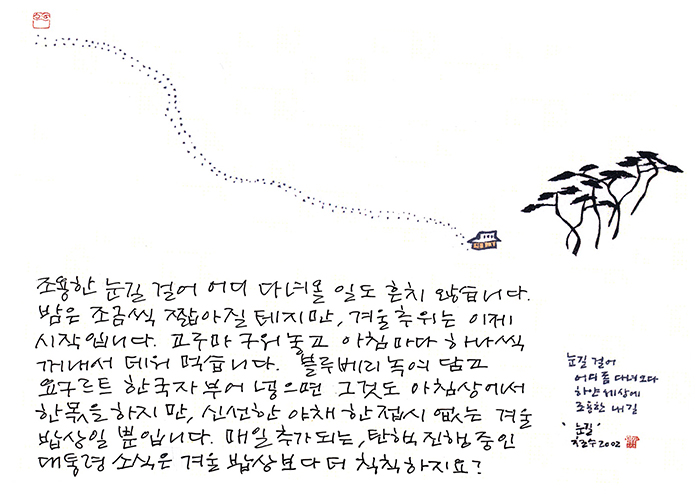 조용한 눈길 걸어 어디 다녀올 일도 흔치 않습니다.
밤은 조금씩 짧아질 테지만, 겨울 추위는 이제
시작입니다. 고구마 구워 놓고 아침마다 하나씩
꺼내서 데워 먹습니다. 블루베리 녹여 담고
요구르트 한국자 부어 넣으면 그것도 아침상에서
한몫을 하지만, 신선한 야채 한 접시 없는 겨울
밥상일 뿐입니다. 매일 추가되는, 탄핵 진행 중인
대통령 소식은 겨울 밥상보다 더 칙칙하지요?
눈길 걸어
어디 좀 다녀오다
하얀 세상에
조용한 내 길
'눈길'
2002